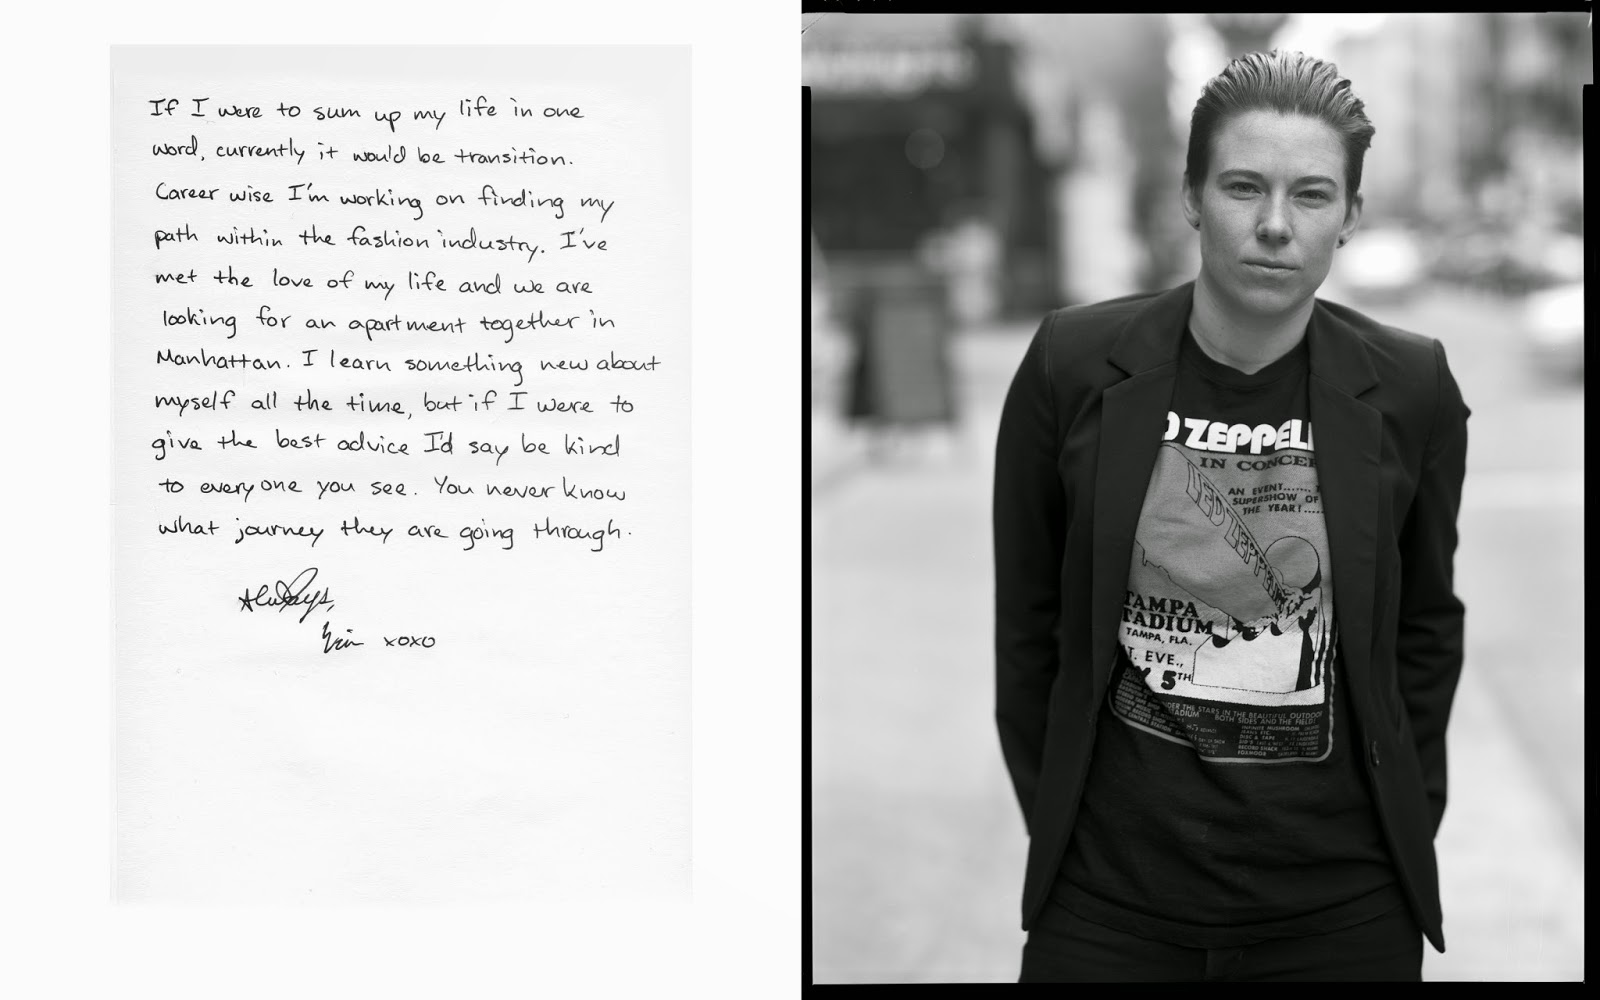 If I were to sum up my life in one
word, currently it would be transition.
Career wise I'm working on finding my
path within the fashion industry. I've
met the love of my life and we are
looking for an apartment together in
Manhattan. I learn something new about
myself all the time, but if I were to
give the best advice I'd say be kind
to everyone you see. You never know
what journey they are going through.
Always,
Erin xoxo
D ZEPPELI
IN CONCER
AN EVENT.......
SUPERSHOW OF
THE YEAR!.....
LED ZEPPELIN
TAMPA
TADIUM
TAMPA, FLA.
T. EVE.,
5TH
DER THE STARS IN THE BEAUTIFUL OUTDOO
BOTH SIDES AND THE FIELD!